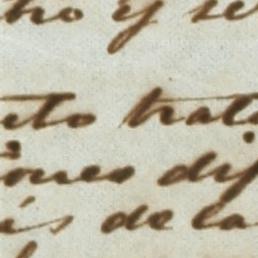 ho y se
eto trat
ones dif
is de la